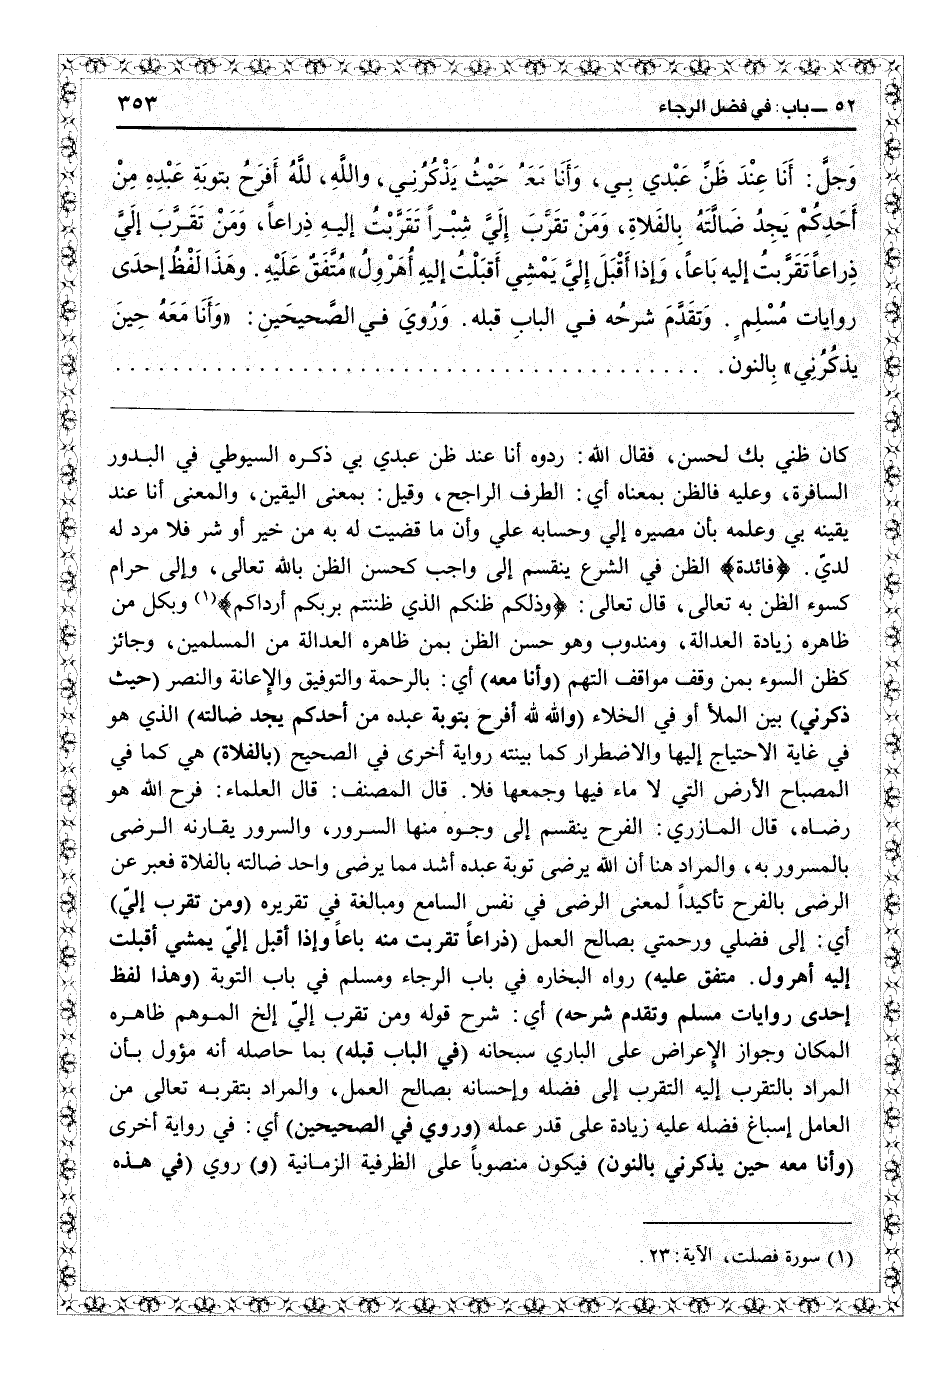 ٥٢ ــ باب: في فضل الرجاء
٣٥٣
وَجلَّ: أَنَا عِنْدَ ظَنِّ عَبْدي بِـي، وَأَنَا مَعَهُ حَيْثُ يَذْكُرُنِـي، واللَّهِ، للَّهُ أَفرَحُ بتوبَةِ عَبْدِهِ مِنْ
أَحَدِكُمْ يَجِدُ ضَالَّتَهُ بِالفَلاةِ، وَمَنْ تقرَّبَ إِلَيَّ شِبْـراً تَقَرَّبْتُ إليـهِ ذِراعاً، وَمَنْ تَقَـرَّبَ إليَّ
ذِراعاً تَقَرَّبتُ إليه بَاعاً، وَإذا أَقْبَلَ إليَّ يَمْشِي أَقبَلْتُ إليهِ أُهَرْوِلُ» مُتَّفَقٌ عَلَيْهِ. وهَذَا لَفْظُ إحدَى
روايات مُسْلِمٍ. وَتقدَّمَ شرحُه فـي البابِ قبله. وَرُويَ فـي الصَّحيحَينِ: «وَأَنا مَعَهُ حِينَ
يذكُرُنِي» بِالنون. . . . . . . . . . . . . . . . . . . . . . . . . . . . . . . . . . . . . . . . .
كان ظني بك لحسن، فقال الله: ردوه أنا عند ظن عبدي بي ذكـره السيوطي في البـدور
السافرة، وعليه فالظن بمعناه أي: الطرف الراجح، وقيل: بمعنى اليقين، والمعنى أنا عند
يقينه بي وعلمه بأن مصيره إلي وحسابه علي وأن ما قضيت له به من خير أو شر فلا مرد له
لديّ. ﴿فائدة﴾ الظن في الشرع ينقسم إلى واجب كحسن الظن بالله تعالى، وإلى حرام
كسوء الظن به تعالى، قال تعالى: ﴿وذلكم ظنكم الذي ظننتم بربكم أرداكم﴾(١) وبكل من
ظاهره زيادة العدالة، ومندوب وهو حسن الظن بمن ظاهره العدالة من المسلمين، وجائز
كظن السوء بمن وقف مواقف التهم (وأنا معه) أي: بالرحمة والتوفيق والإعانة والنصر (حيث
ذكرني) بين الملأ أو في الخلاء (والله لله أفرح بتوبة عبده من أحدكم يجد ضالته) الذي هو
في غاية الاحتياج إليها والاضطرار كما بينته رواية أخرى في الصحيح (بالفلاة) هي كما في
المصباح الأرض التي لا ماء فيها وجمعها فلا. قال المصنف: قال العلماء: فرح الله هو
رضاه، قال المازري: الفرح ينقسم إلى وجوه منها السرور، والسرور يقارنه الرضى
بالمسرور به، والمراد هنا أن الله يرضى توبة عبده أشد مما يرضى واحد ضالته بالفلاة فعبر عن
الرضى بالفرح تأكيداً لمعنى الرضى في نفس السامع ومبالغة في تقريره (ومن تقرب إليّ)
أي: إلى فضلي ورحمتي بصالح العمل (ذراعاً تقربت منه باعاً وإذا أقبل إليّ يمشي أقبلت
إليه أهرول. متفق عليه) رواه البخاره في باب الرجاء ومسلم في باب التوبة (وهذا لفظ
إحدى روايات مسلم وتقدم شرحه) أي: شرح قوله ومن تقرب إليّ إلخ الموهم ظاهره
المكان وجواز الإعراض على الباري سبحانه (في الباب قبله) بما حاصله أنه مؤول بـأن
المراد بالتقرب إليه التقرب إلى فضله وإحسانه بصالح العمل، والمراد بتقربـه تعالى من
العامل إسباغ فضله عليه زيادة على قدر عمله (وروي في الصحيحين) أي: في رواية أخرى
(وأنا معه حين يذكرني بالنون) فيكون منصوباً على الظرفية الزمانية (و) روي (في هذه
(١) سورة فصلت، الآية: ٢٣.